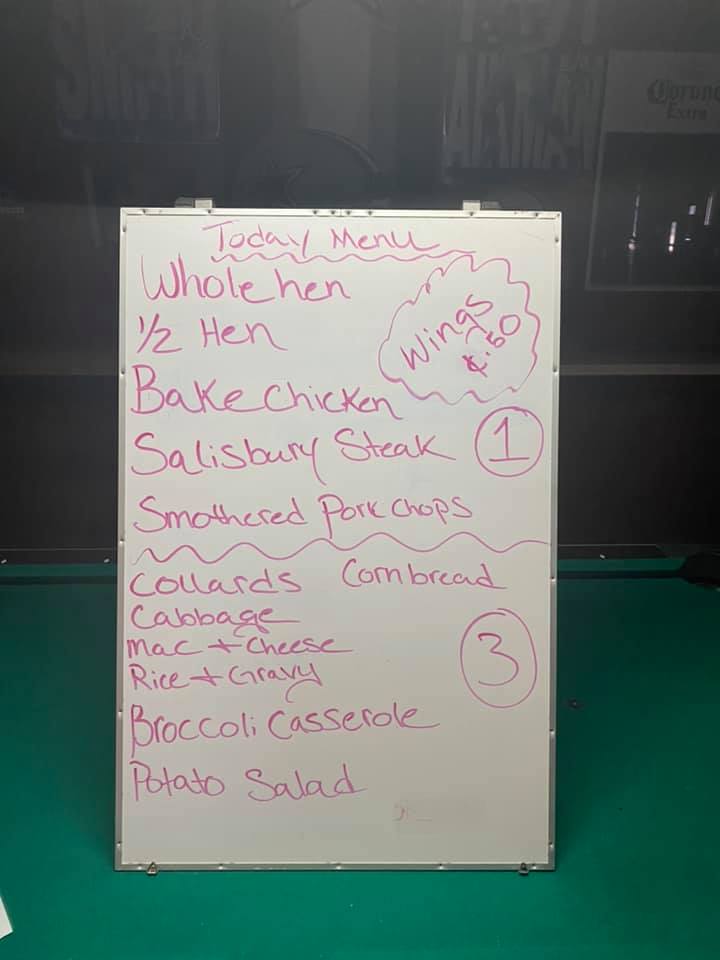 Today Menu
Whole hen
1/2 Hen
Wings
¢.50
Bake Chicken
Salisbury Steak
1
Smothered Pork chops
Collards Cornbread
Cabbage
Mac + Cheese
Rice + Gravy
3
Broccoli Casserole
Potato Salad
Corona
Extra